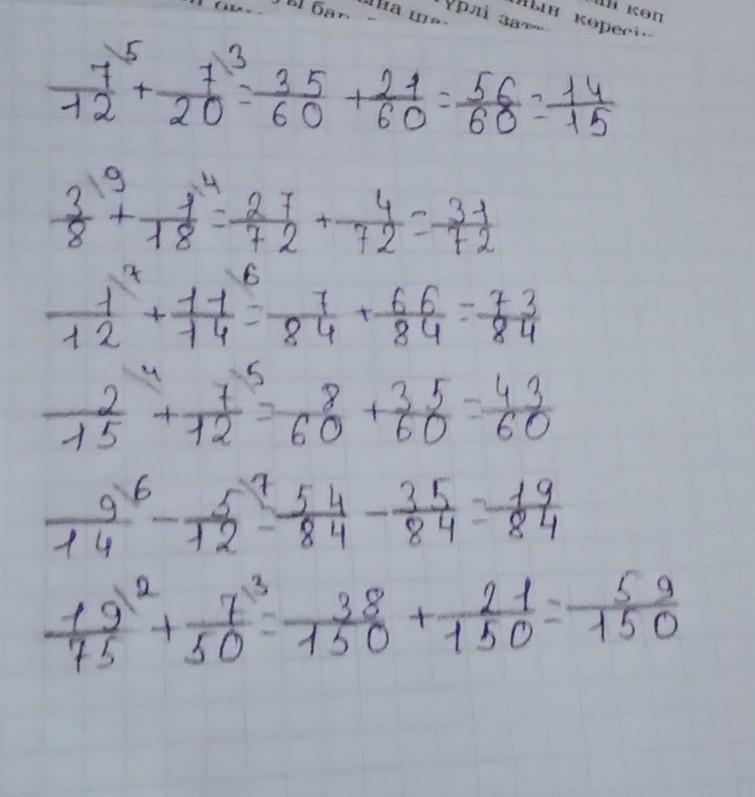 көп
көресі
7/12 \5 + 7/20 \3 = 35/60 + 21/60 = 56/60 = 14/15
3/8 \9 + 1/18 \4 = 27/72 + 4/72 = 31/72
1/12 \7 + 11/14 \6 = 7/84 + 66/84 = 73/84
2/15 \4 + 7/12 \5 = 8/60 + 35/60 = 43/60
9/14 \6 - 5/12 \7 = 54/84 - 35/84 = 19/84
19/75 \2 + 7/50 \3 = 38/150 + 21/150 = 59/150